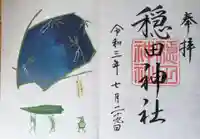 奉拝
穏田神社
令和三年 七月二十日